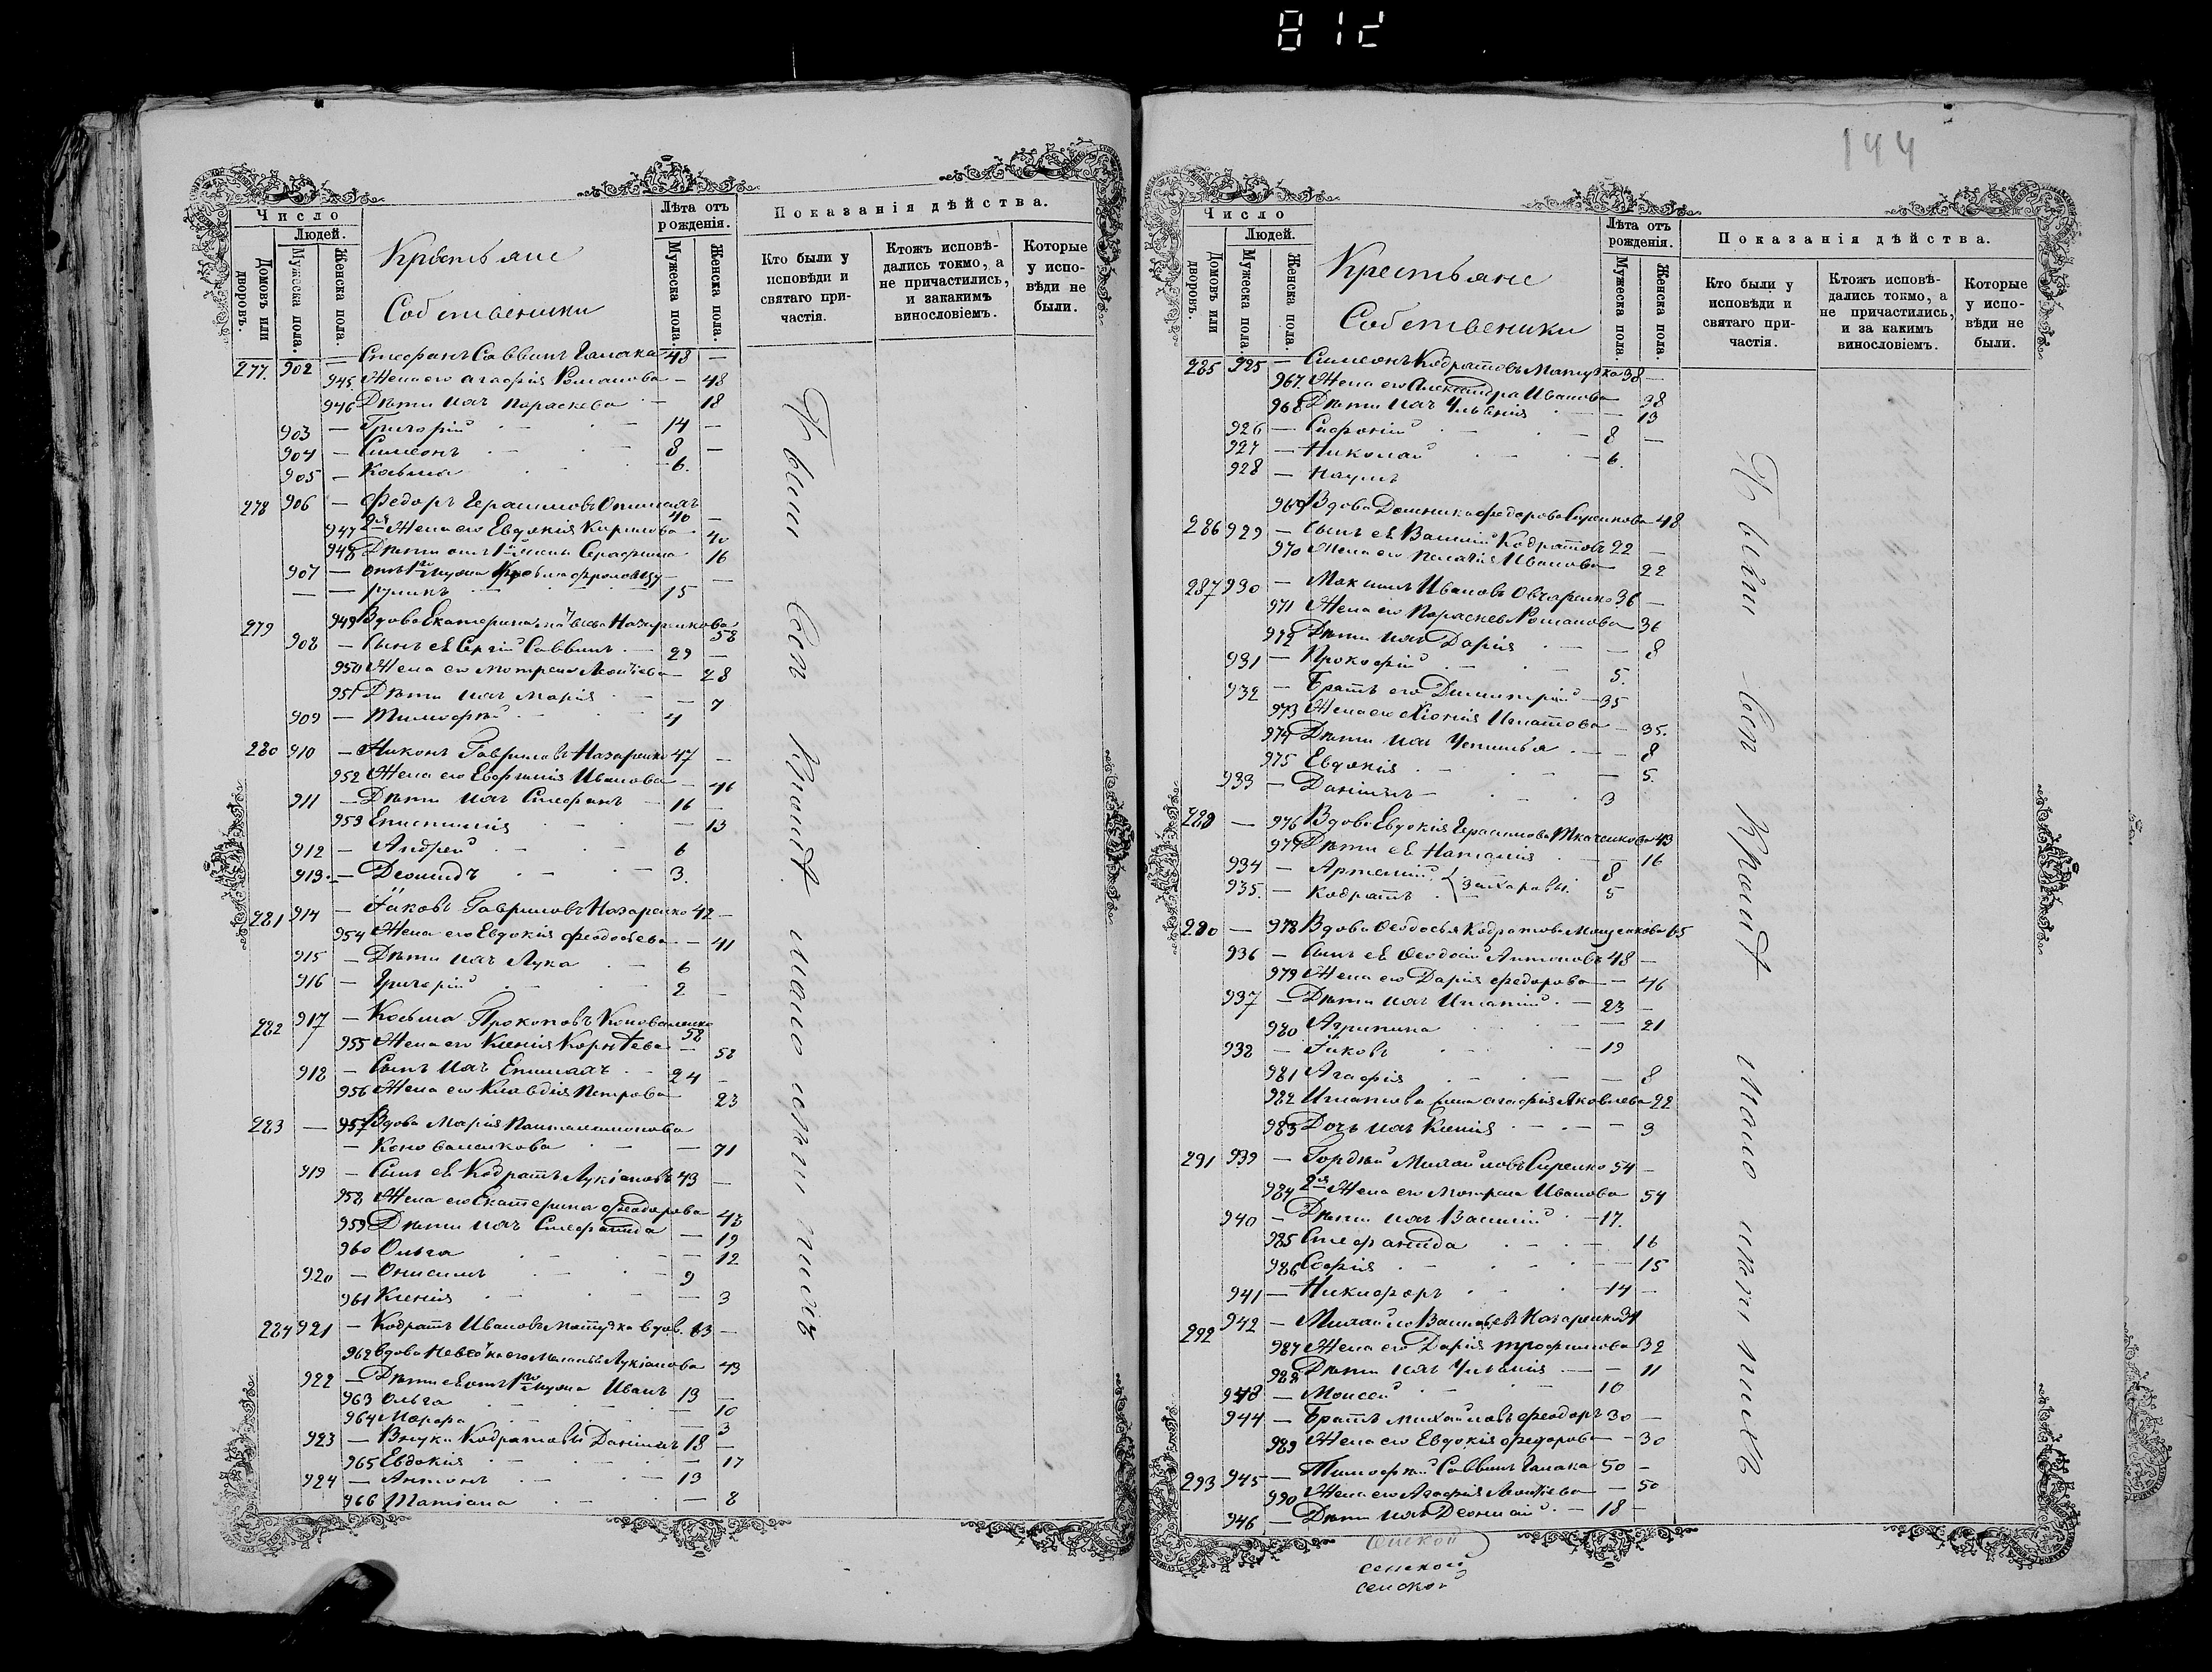 812
Число
Людей.
Домовъ или дворовъ.
Мужеска пола.
Женска пола.
Крестьяне
Собственики
Лѣта отъ рожденія.
Мужеска пола.
Женска пола.
Показанія дѣйства.
Кто были у исповѣди и святаго причастія.
Ктожъ исповѣдались токмо, а не причастились, и закакимъ винословіемъ.
Которые у исповѣди не были.
277. 902 — Стефанъ Саввинъ Галака 48 —
945. Жена его Агафія Романова — 48
946 Дѣти ихъ Параскева — 18
903 — Григорій 14 —
904 — Симеонъ 8 —
905 — Косьма 6.
278 906 — Федоръ Герасимовъ 40 —
947 2я Жена его Евдокія Кирилова 40
948 Дѣти отъ 1й жены Серафима 16
907 — отъ 1го мужа
— — 15 —
279 949 Вдова Екатерина Назаренкова 58
908 — Сынъ еѣ Сергій Саввинъ 29 —
950 Жена его Мотрона Леонтіева — 28
951 Дѣти ихъ Марія — 7
909 — Тимофѣй 4
280 910 — Никонъ Гавриловъ Назаренко 47 —
952 Жена его Евфимія Иванова — 46
911 — Дѣти ихъ Стефанъ 16 —
953 Епистимія — 13
912 — Андрей 6
913. — Леонидъ 3.
281 914 — Іаковъ Гавриловъ Назаренко 42 —
954 Жена его Евдокія Феодосіева — 41
915 — Дѣти ихъ Лука 6
916 — Григорій 2 —
282 917 — Косьма Прокоповъ Коноваленко 58
955 Жена его Ксенія Корнѣева — 58
918 — Сынъ ихъ 24 —
956 Жена его Клавдія Петрова 23
283 — 957 Вдова Марія Панталимонова
— Коноваленкова — 71
919 — Сынъ еѣ Кодратъ Лукіановъ 43 —
958 Жена его Екатерина Феодорова 43
959 Дѣти ихъ Стефанида — 19
960 Ольга — 12
920 — Онисимъ 9
961 Ксенія — 3
284 921 — Кодратъ Ивановъ Матузка вдов. 63 —
962 Вдова Невѣстка его Лукіанова 43
922 — Дѣти еѣ отъ 1го мужа Иванъ 13 —
963 Ольга — 10
964 Марфа — 3
923 — Внуки Кодратовы Даніилъ 18 —
965 Евдокія — 17
924 — Антонъ 13
966 Татіана — 8
Были вси
144
Число
Людей.
Домовъ или дворовъ.
Мужеска пола.
Женска пола.
Крестьяне
Собственики
Лѣта отъ рожденія.
Мужеска пола.
Женска пола.
Показанія дѣйства.
Кто были у исповѣди и святаго причастія.
Ктожъ исповѣдались токмо, а не причастились, и за какимъ винословіемъ.
Которые у исповѣди не были.
285 925 — Симеонъ Кодратовъ Матузка 38 —
967. Жена его Александра Иванова 38
968 Дѣти ихъ Ульянія — 13
926 — Сафоній 8 —
927 — Николай 6.
928 — Наумъ
969 Вдова Домника Федорова Сиренкова 48
286 929 — Сынъ еѣ Василій Кодратовъ 22 —
970 Жена его Пелагія Иванова 22
287 930 — Максимъ Ивановъ Овчаренко 36 —
971 Жена его Параскев. Романова 36
972 Дѣти ихъ Дарія — 8
931 — Прокофій 5.
932 — Братъ его Димитрій 35
973 Жена его Хіонія Игнатова — 35.
974 Дѣти ихъ Устинья — 8
975 Евдокія — 5.
933 — Даніилъ 3
288 — 976 Вдова Евдокія Герасимова Ткаченкова 43
977 Дѣти еѣ Наталія — 16
934 — Артемій 8
935. — Кодратъ Захаровы. 5
290 — 978 Вдова Феодосья Кодратова 65
936 — Сынъ еѣ Феодосій Антоновъ 48 —
979 Жена его Дарія Федорова — 46
937 — Дѣти ихъ Игнатій 23 —
980. Агрипина — 21
938 — Іаковъ 19
981 Агафія — 8
982 Игнатова жена Агафія Яковлева 22
983 Дочь ихъ Ксенія — 3
291 939 — Гордѣй Михайловъ Сиренко 54 —
984 2я Жена его Мотрона Иванова 54
940 — Дѣти ихъ Василій 17.
985 Стефанида 16
986 Софія — 15
941 — Никифоръ 14 —
292 942 — Михайло Васильевъ Назаренко 34
987 Жена его Дарія Трофимова 32
988 Дѣти ихъ Ульянія — 11
943 — Моисей 10
944 — Братъ Михайловъ Феодоръ 30 —
989 Жена его Евдокія Федорова — 30
293 945 — Тимофѣй Саввинъ Галака 50 —
990 Жена его Агафія Леонтіева — 50
946 — Дѣти ихъ 18 —
Были вси